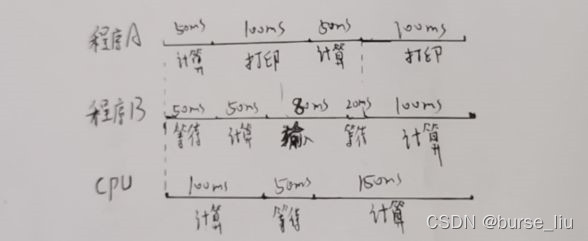 50ms 100ms 50ms 100ms
程序A
计算 打印 计算 打印
50ms 50ms 80ms 20ms 100ms
程序B
等待 计算 输入 等待 计算
100ms 50ms 150ms
CPU
计算 等待 计算
CSDN @burse_liu